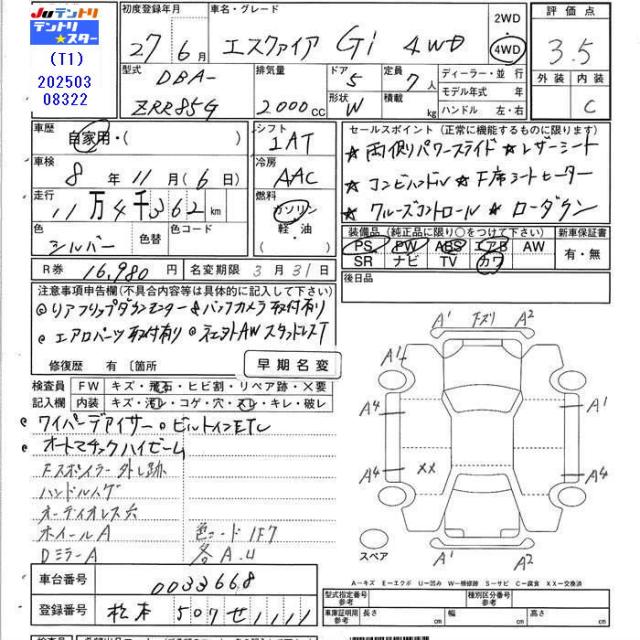 JUテントリ
テントリ
★スター
(T1)
202503
08322
初度登録年月
27年 6月
車名・グレード
エスクァイア Gi 4WD
2WD
・
4WD
評価点
3.5
外装 内装
C
型式
DBA-
ZRR85G
排気量
2000cc
ドア
5
形状
W
定員
7人
積載
kg
ディーラー・並行
モデル年式 年
ハンドル 左・右
車歴
自家用・( )
シフト
IAT
車検
8年 11月 (6日)
冷房
AAC
走行
11万4千362km
燃料
ガソリン
軽・油
( )
色
シルバー
色替
色コード
R券 16,980円
名変期限 3月31日
セールスポイント (正常に機能するものに限ります)
★両側パワースライド ★レザーシート
★コンビハンドル ★F席シートヒーター
★クルーズコントロール ★ローダウン
装備品 (純正品に限り○をつけて下さい)
PS PW ABS エアB AW
SR ナビ TV カワ
新車保証書
有・無
後日品
注意事項申告欄(不具合内容等は具体的に記入して下さい)
◎リアフリップダウンモニター & バックカメラ取付有り
◎エアロパーツ取付有り
修復歴 有 〔箇所
早期名変
検査員
記入欄
FW キズ・飛石・ヒビ割・リペア跡・×要
内装 キズ・汚レ・コゲ・穴・スレ・キレ・破レ
◎ワイパーデアイサー ◎ビルトインETC
◎オートマチックハイビーム
Fスポイラー外し跡
ハンドルハゲ
オーディオレス穴
ホイールA 色コード 1F7
DミラーA 各A.U
A1 下ズリ A2
A1
A4 A1
A4 XX A4
A1 A2
スペア
A－キズ E－エクボ U－凹み W－補修跡 S－サビ C－腐食 XX－交換済
車台番号 0033668
登録番号 松本 507 せ 1111
型式指定番号
参考
種別区分番号
参考
車庫証明用
参考
長さ cm 幅 cm 高さ cm